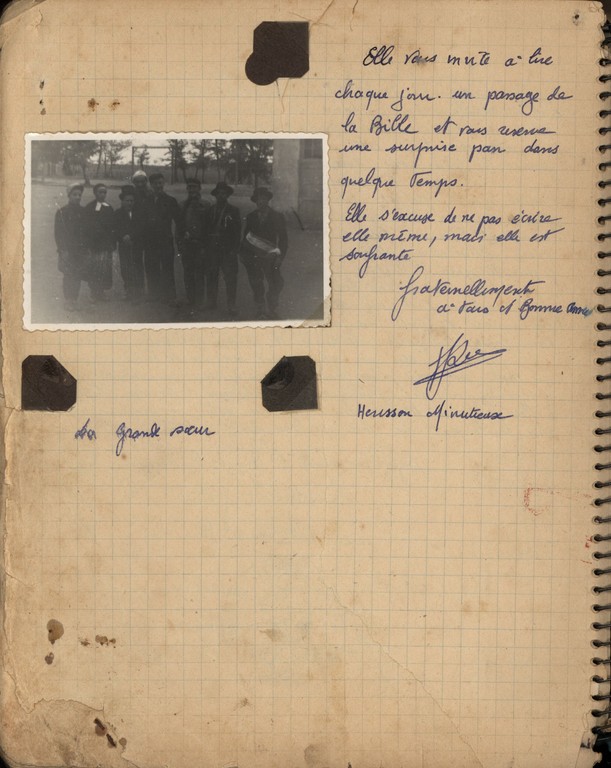 Elle vous invite à lire
chaque jour. un passage de
la Bille et vous reserve
une surprise pan dans
quelque Temps.
Elle s'excuse de ne pas écrire
elle même, mais elle est
soufrante
fraternellement
à vous et Bonne
Herisson Minutieux
La Grande sœur